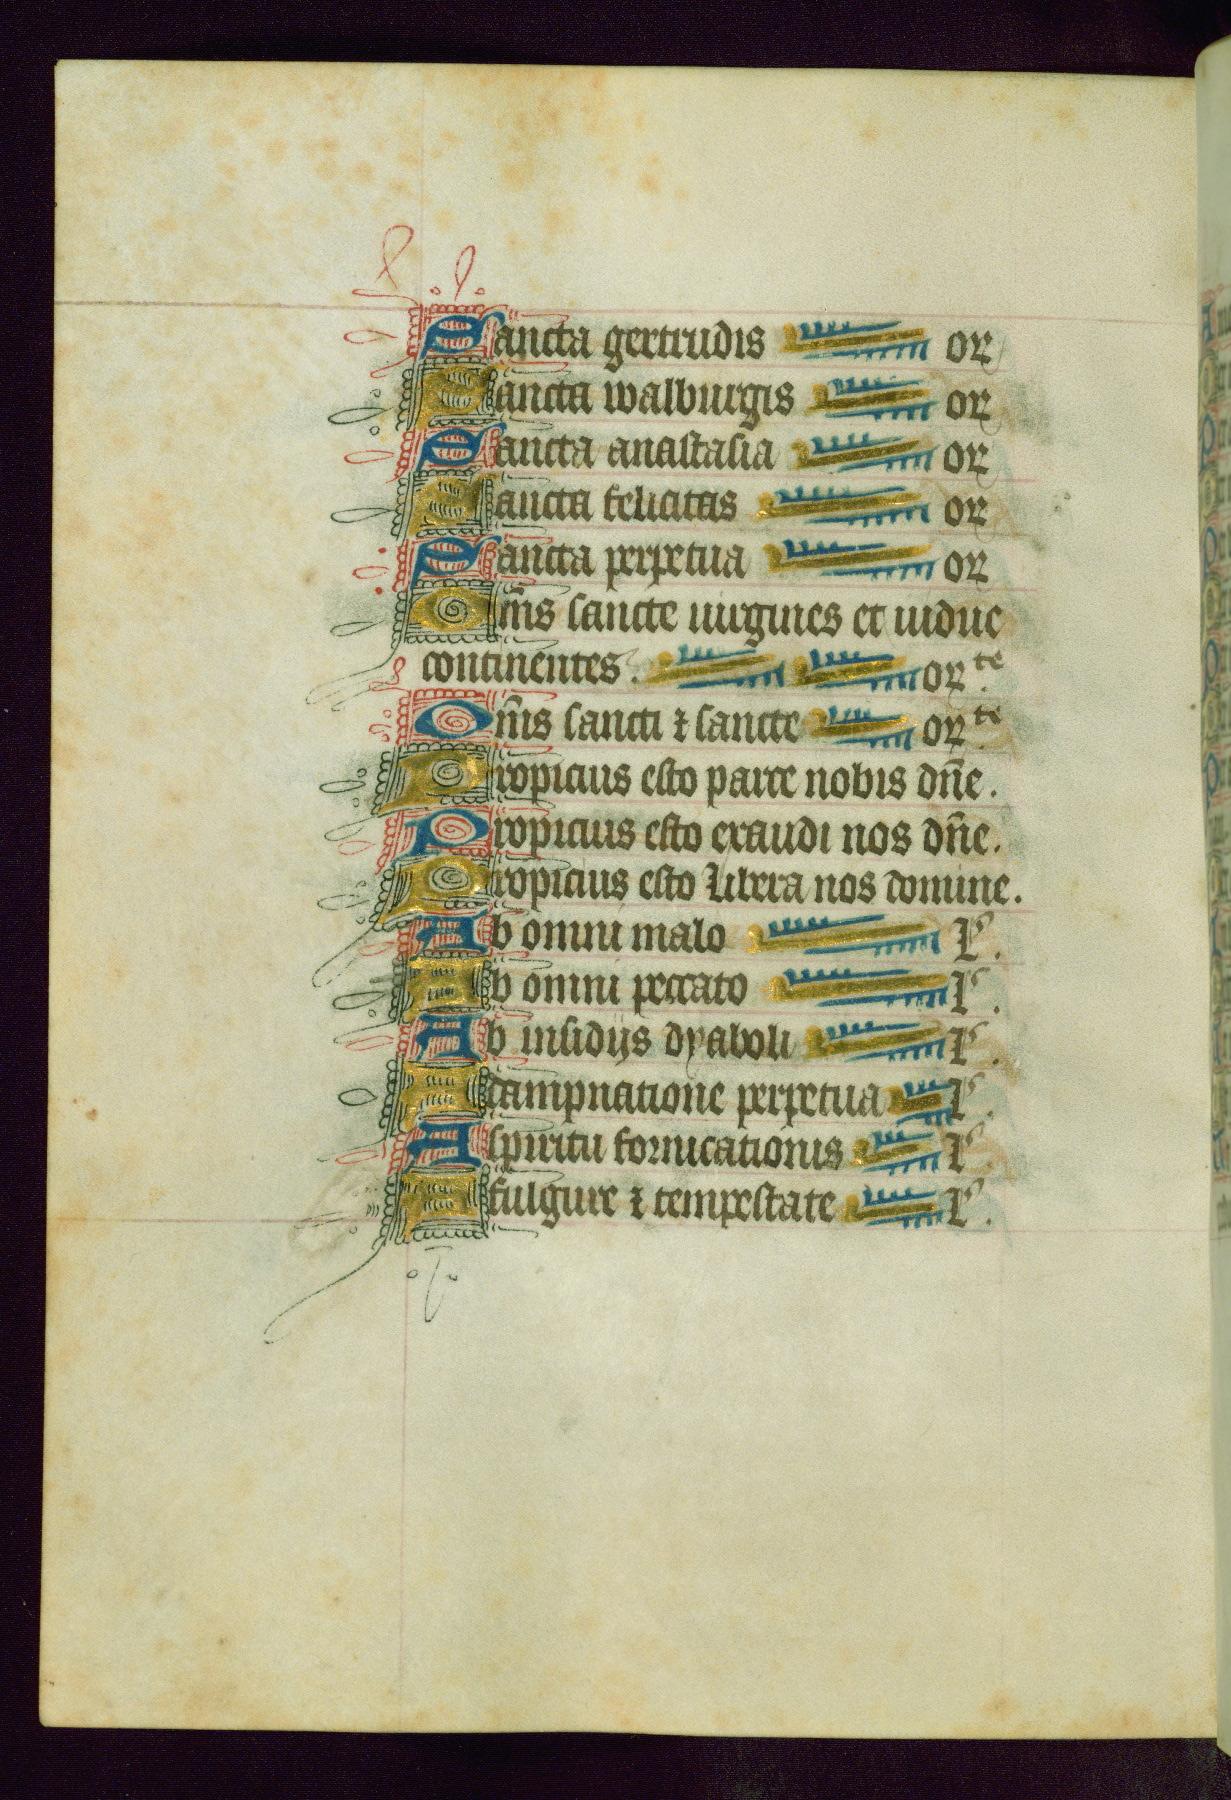 Sancta gertrudis or
Sancta walburgis or
Sancta anastasia or
Sancta felicitas or
Sancta perpetua or
Om̄s sancte uirgines et uidue
continentes. or te.
Om̄s sancti ⁊ sancte or te.
Propicius esto parce nobis dn̄e.
Propicius esto exaudi nos dn̄e.
Propicius esto Libera nos domine.
Ab omni malo L'.
Ab omni peccato L'.
Ab insidijs dyaboli L'.
A dampnatione perpetua L'.
A spiritu fornicationis L'.
A fulgure ⁊ tempestate L'.